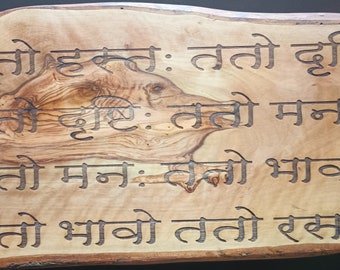 तो हस्तः ततो दृ
तो दृष्टिः ततो मन
तो मनः ततो भाव
तो भावो ततो रस